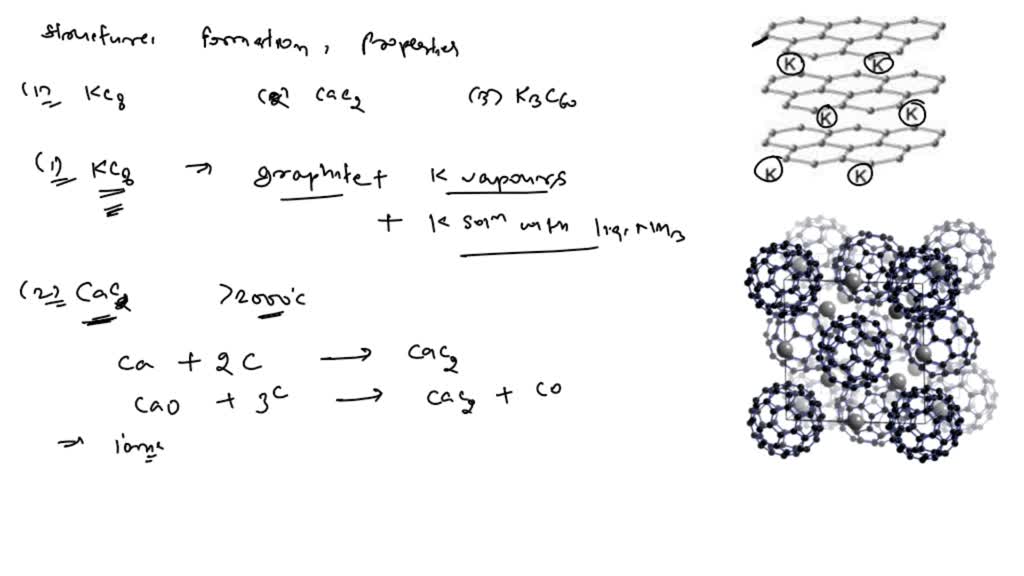 Structure, formation, Properties
(1) KC8 (2) CaC2 (3) K3C60
(1) KC8 → graphite + K vapours
+ K soln with liq. NH3
(2) CaC2 >2000°C
Ca + 2C → CaC2
CaO + 3C → CaC2 + CO
⇒ ionic
K K
K K
K K